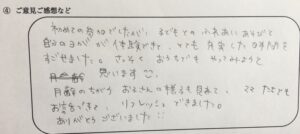 ④ ご意見ご感想など
初めての参加でしたが、子どもとの ふれあいあそびで
自分のヨガが 体験できて、とても 充実した時間を
すごせました。さっそく おうちでも やってみようと
思います
月齢のちがう お子さんの様子も見れて、ママたちとも
お話もできて、リフレッシュできました。
ありがとうございました!!